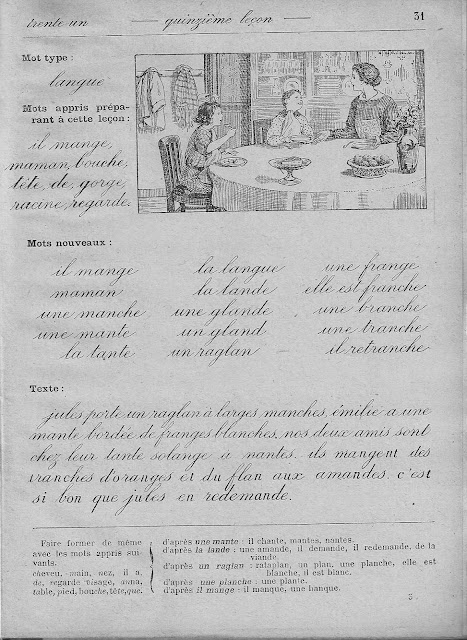 trente un — quinzième leçon — 31
Mot type :
langue
Mots appris prépa-
rant à cette leçon :
il mange,
maman, bouche,
tête, de, gorge,
racine, regarde.
Mots nouveaux :
il mange la langue une frange
maman la lande elle est franche
une manche une glande une branche
une mante un gland une tranche
la tante un raglan — il retranche
Texte :
jules porte un raglan à larges manches, émilie a une
mante bordée de franges blanches, nos deux amis sont
chez leur tante solange à nantes. ils mangent des
tranches d'oranges et du flan aux amandes. c'est
si bon que jules en redemande.
Faire former de même
avec les mots appris sui-
vants.
cheveu, main, nez, il a,
de, regarde visage, anna,
table, pied, bouche, tête, que.
d'après une mante : il chante, mantes, nantes.
d'après la lande : une amande, il demande, il redemande, de la
viande.
d'après un raglan : rataplan, un plan, une planche, elle est
blanche, il est blanc.
d'après une planche : une plante.
d'après il mange : il manque, une banque.
3.